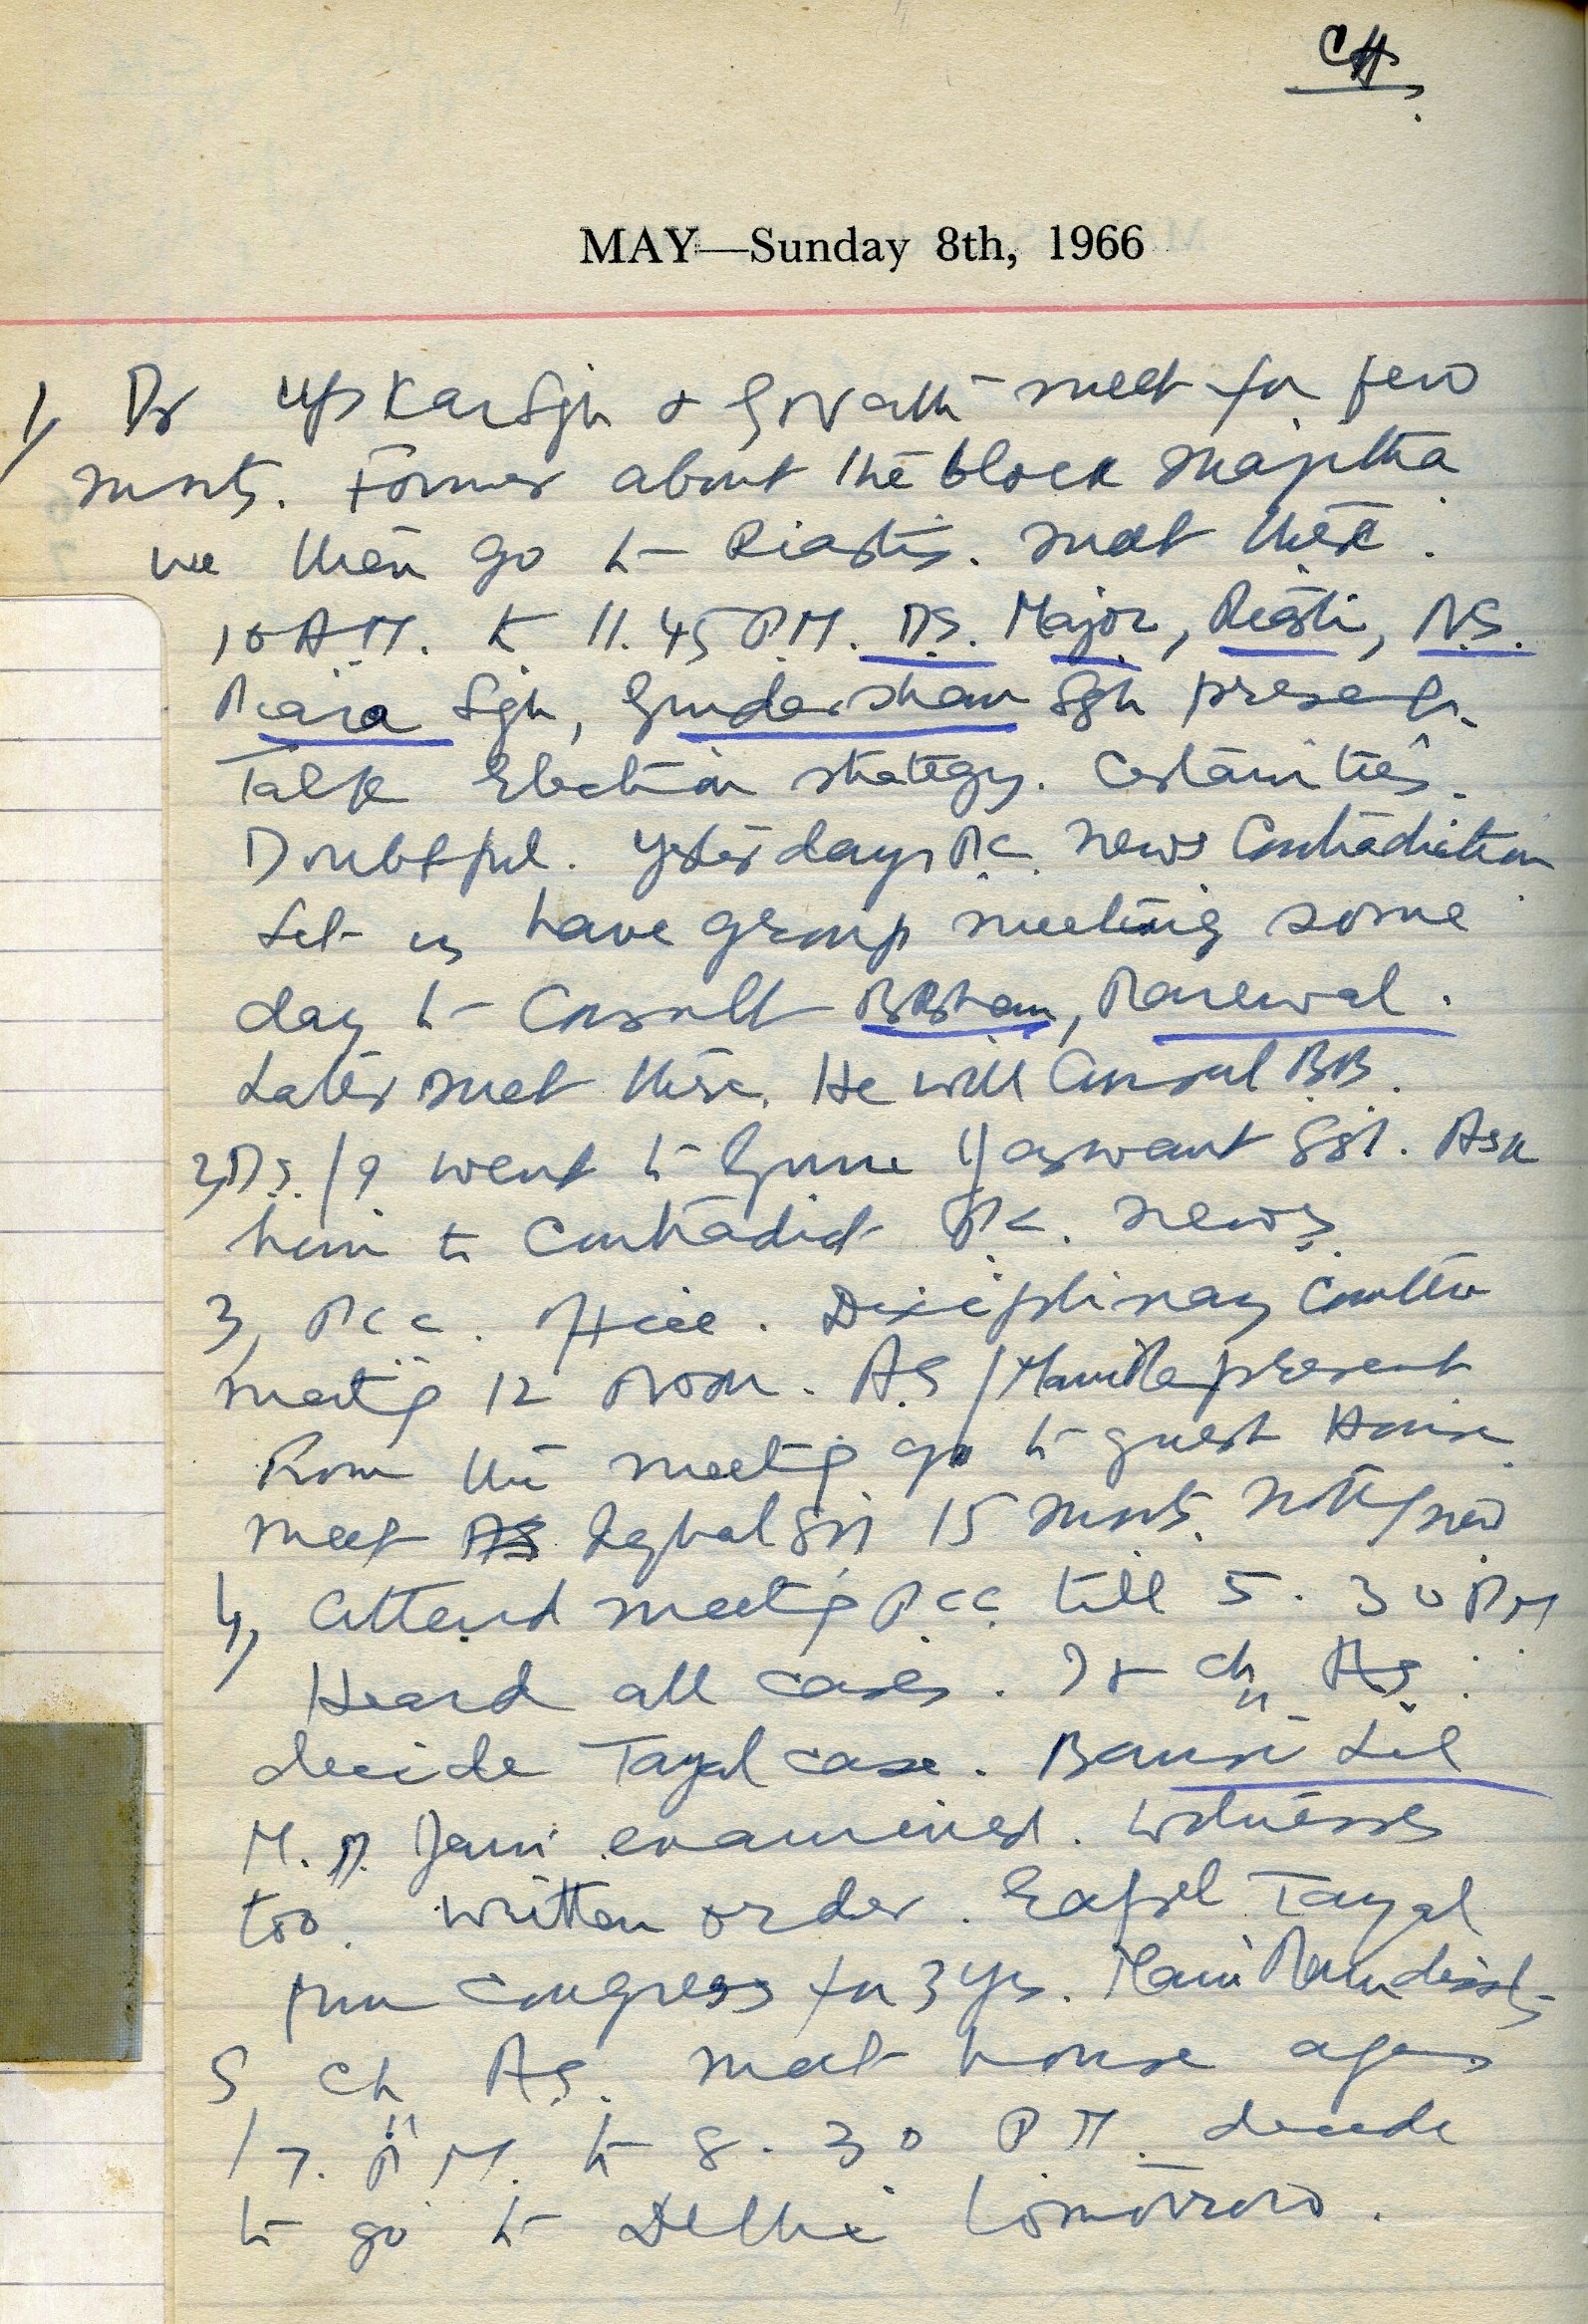 CH
MAY—Sunday 8th, 1966
1, Dr Upkar Sgh & meet for few
mnts. Former about the block Majitha
we then go to Riasti's. meet there.
10 A.M. to 11.45 P.M. D.S. Major, Riasti, N.S.
Piara Sgh, Gurdarshan Sgh present.
Talk Election strategy. Certainties.
Doubtful. Yesterdays P.C. news Contradiction
Let us have group meeting some
day to Consult , Parewal.
Later met there. He will Consul BB.
2, D.S. / 9 went to Gurne Yaswant Sgh. Ask
him to Contradict P.C. news
3, P.C.C. Office. Disciplinary Comttee
meetig 12 Noon. A.S / Mani Ra present
From the meetig go to guest House
meet Iqbal Sgh 15 mnts. Nothg new
4, Attend meetig P.C.C. till 5.30 P.M
Heard all cases. I & Ch A.S.
decide Tayal case. Bansi Lal
M. D. Jain examined. Witnesses
too. Written order. Expel Tayal
from Congress for 3 yrs. Mani Ram dissts
5, Ch A.S. meet house again
/ 7. P.M. to 8.30 P.M. decide
to go to Delhi tomorrow.